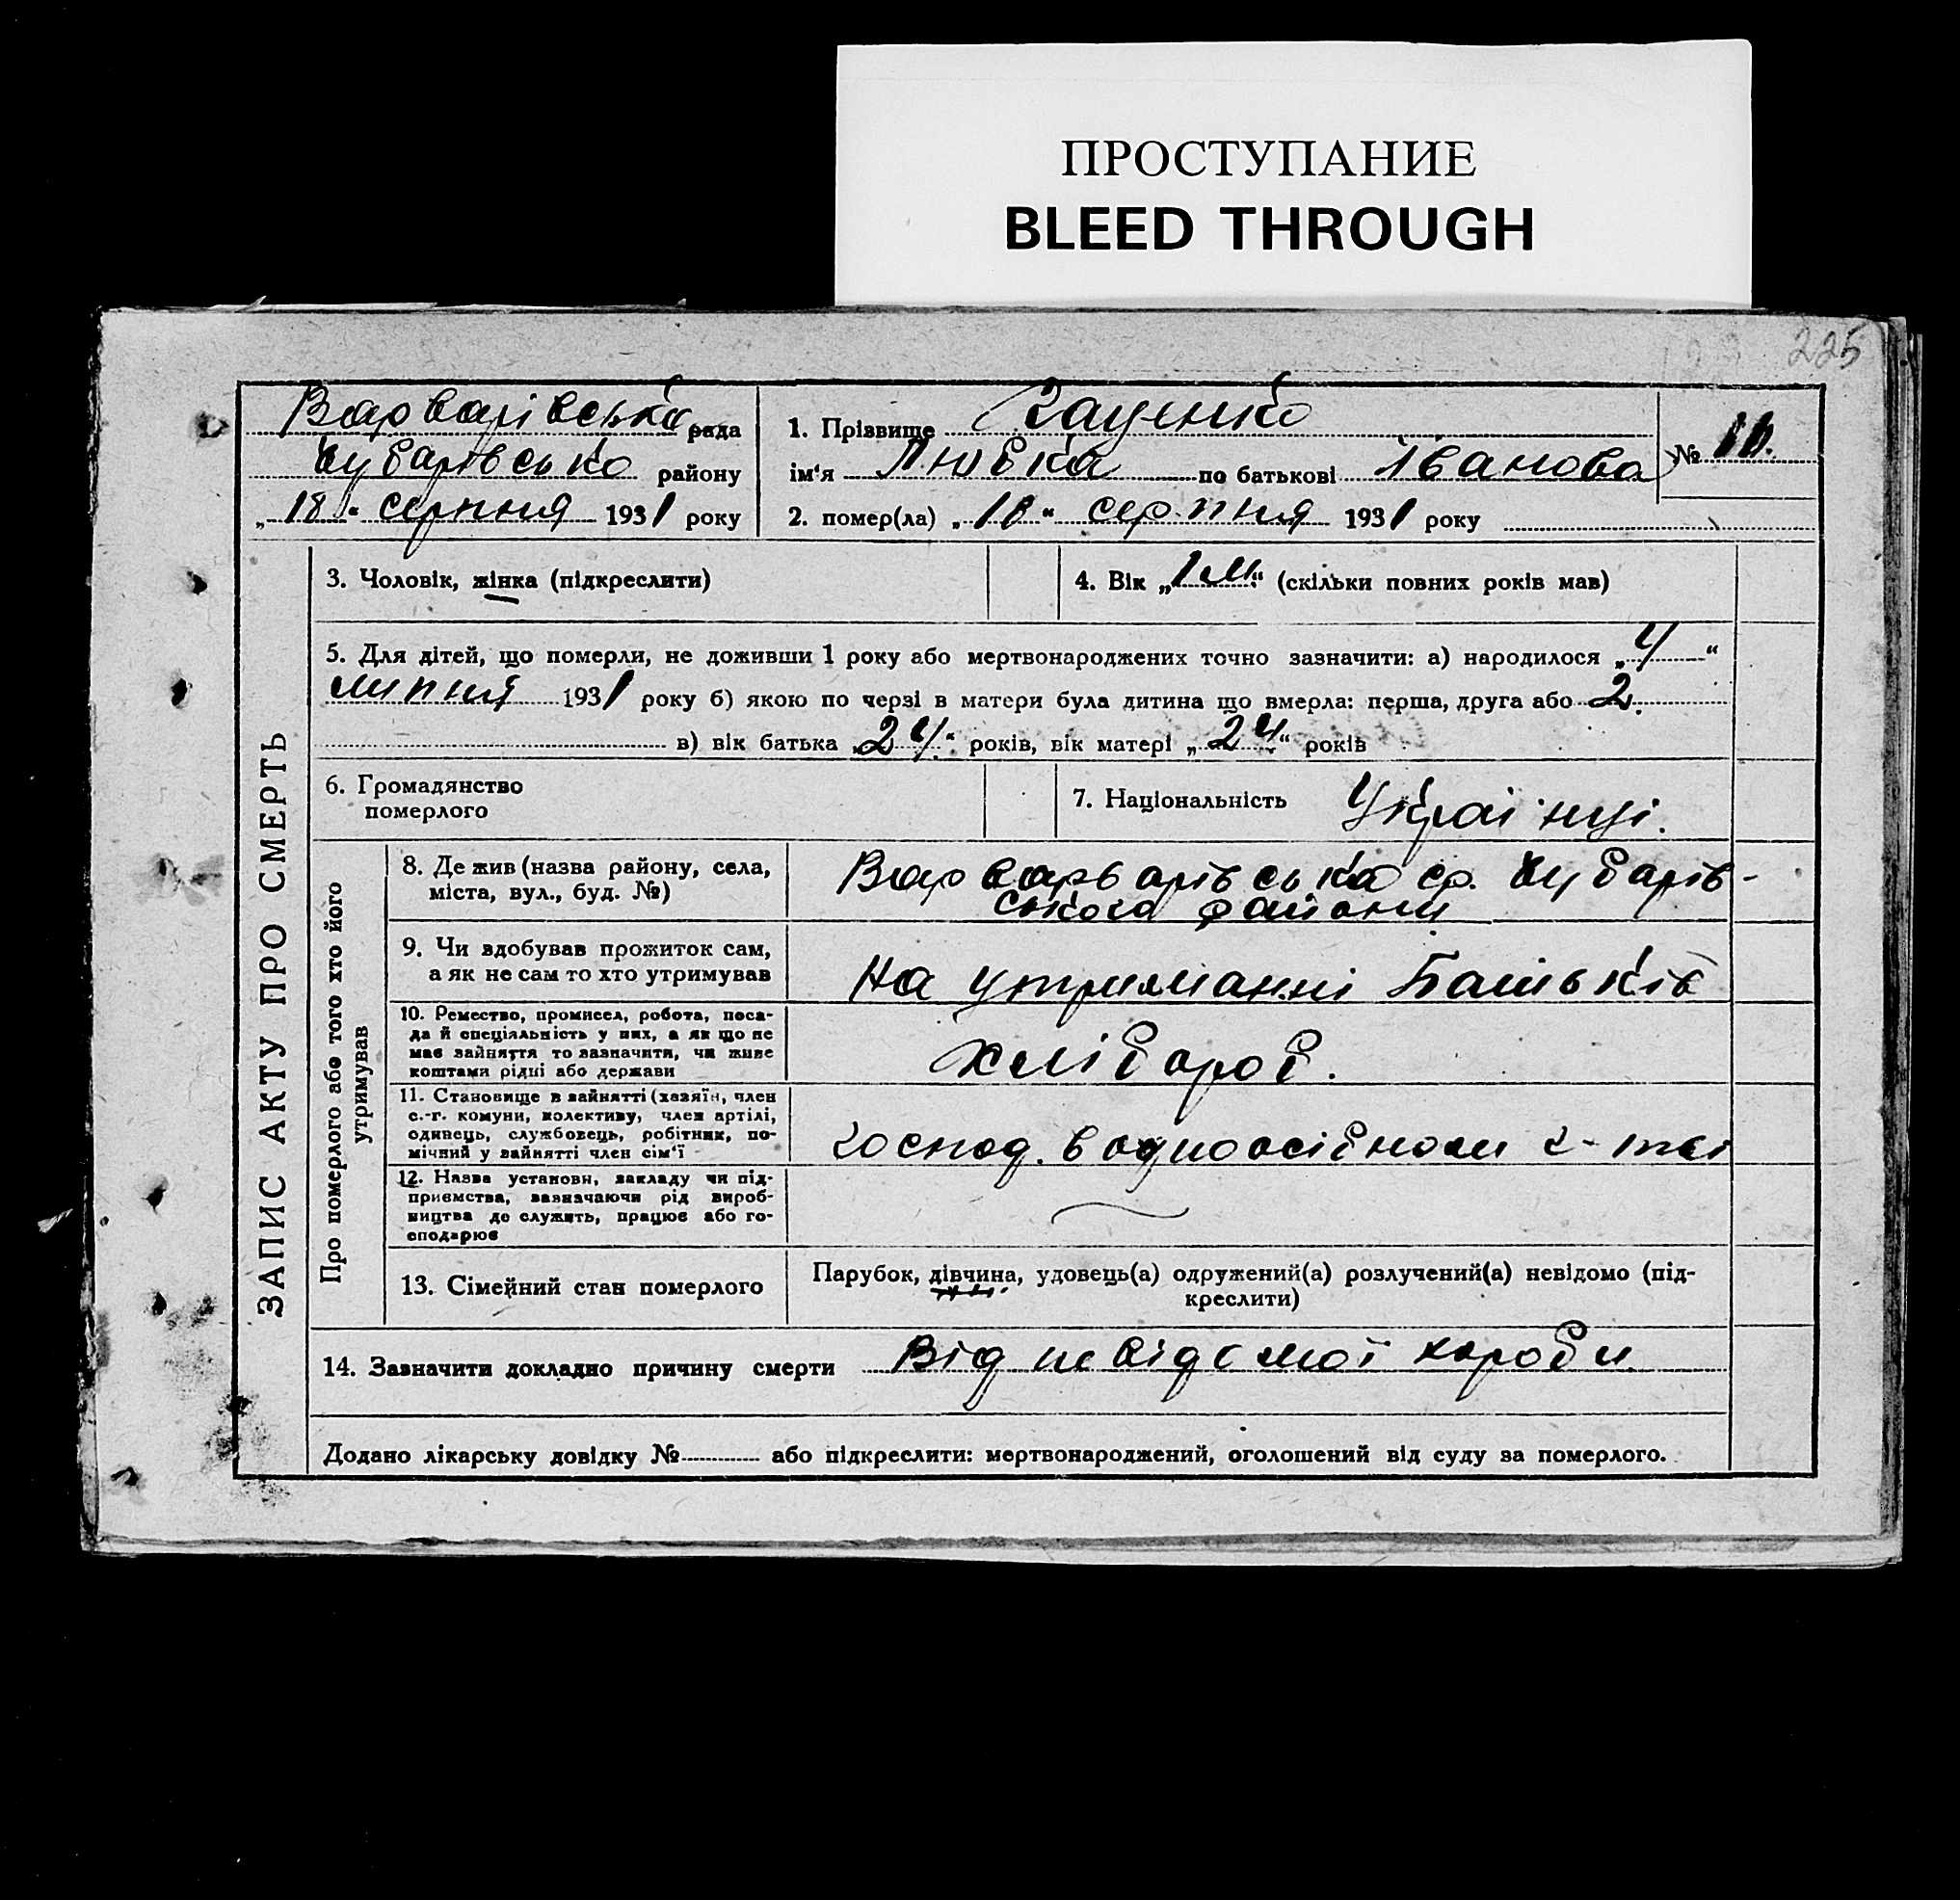 ПРОСТУПАНИЕ
BLEED THROUGH
225
Варварівська рада
Чубарівсько району
„18“ серпня 1931 року
1. Прізвище Кащенко
ім'я Любка по батькові Іванова
№ 10.
2. помер(ла) „10“ серпня 1931 року
3. Чоловік, жінка (підкреслити)
4. Вік „1 м.“ (скільки повних років мав)
5. Для дітей, що померли, не доживши 1 року або мертвонароджених точно зазначити: а) народилося „4“
липня 1931 року б) якою по черзі в матери була дитина що вмерла: перша, друга або 2.
в) вік батька „24“ років, вік матері „24“ років
6. Громадянство
померлого
7. Національність Українці.
ЗАПИС АКТУ ПРО СМЕРТЬ
Про померлого або того хто його
утримував
8. Де жив (назва району, села,
міста, вул., буд. №)
Варварьарівська ср. Чубарів-
ського району
9. Чи здобував прожиток сам,
а як не сам то хто утримував
На утриманні Батьків
10. Ремество, промисел, робота, поса-
да й спеціальність у них, а як що не
має зайняття то зазначити, чи живе
коштами рідні або держави
Хлібороб.
11. Становище в зайнятті (хазяїн, член
с.-г. комуни, колективу, член артілі,
одинець, службовець, робітник, по-
мічний у зайнятті член сім'ї
господ. в одноосібном г-тві
12. Назва установи, закладу чи під-
приємства, зазначаючи рід вироб-
ництва де служить, працює або го-
сподарює
13. Сімейний стан померлого
Парубок, дівчина, удовець(а) одружений(а) розлучений(а) невідомо (під-
креслити)
14. Зазначити докладно причину смерти Від невідомої хороби
Додано лікарську довідку № або підкреслити: мертвонароджений, оголошений від суду за померлого.